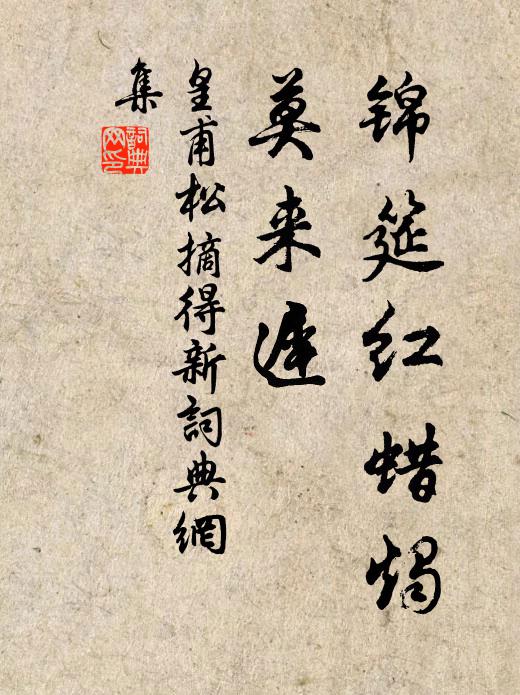 锦筵红蜡烛
莫来迟
皇甫松摘得新詞典網
集
詞典
网印